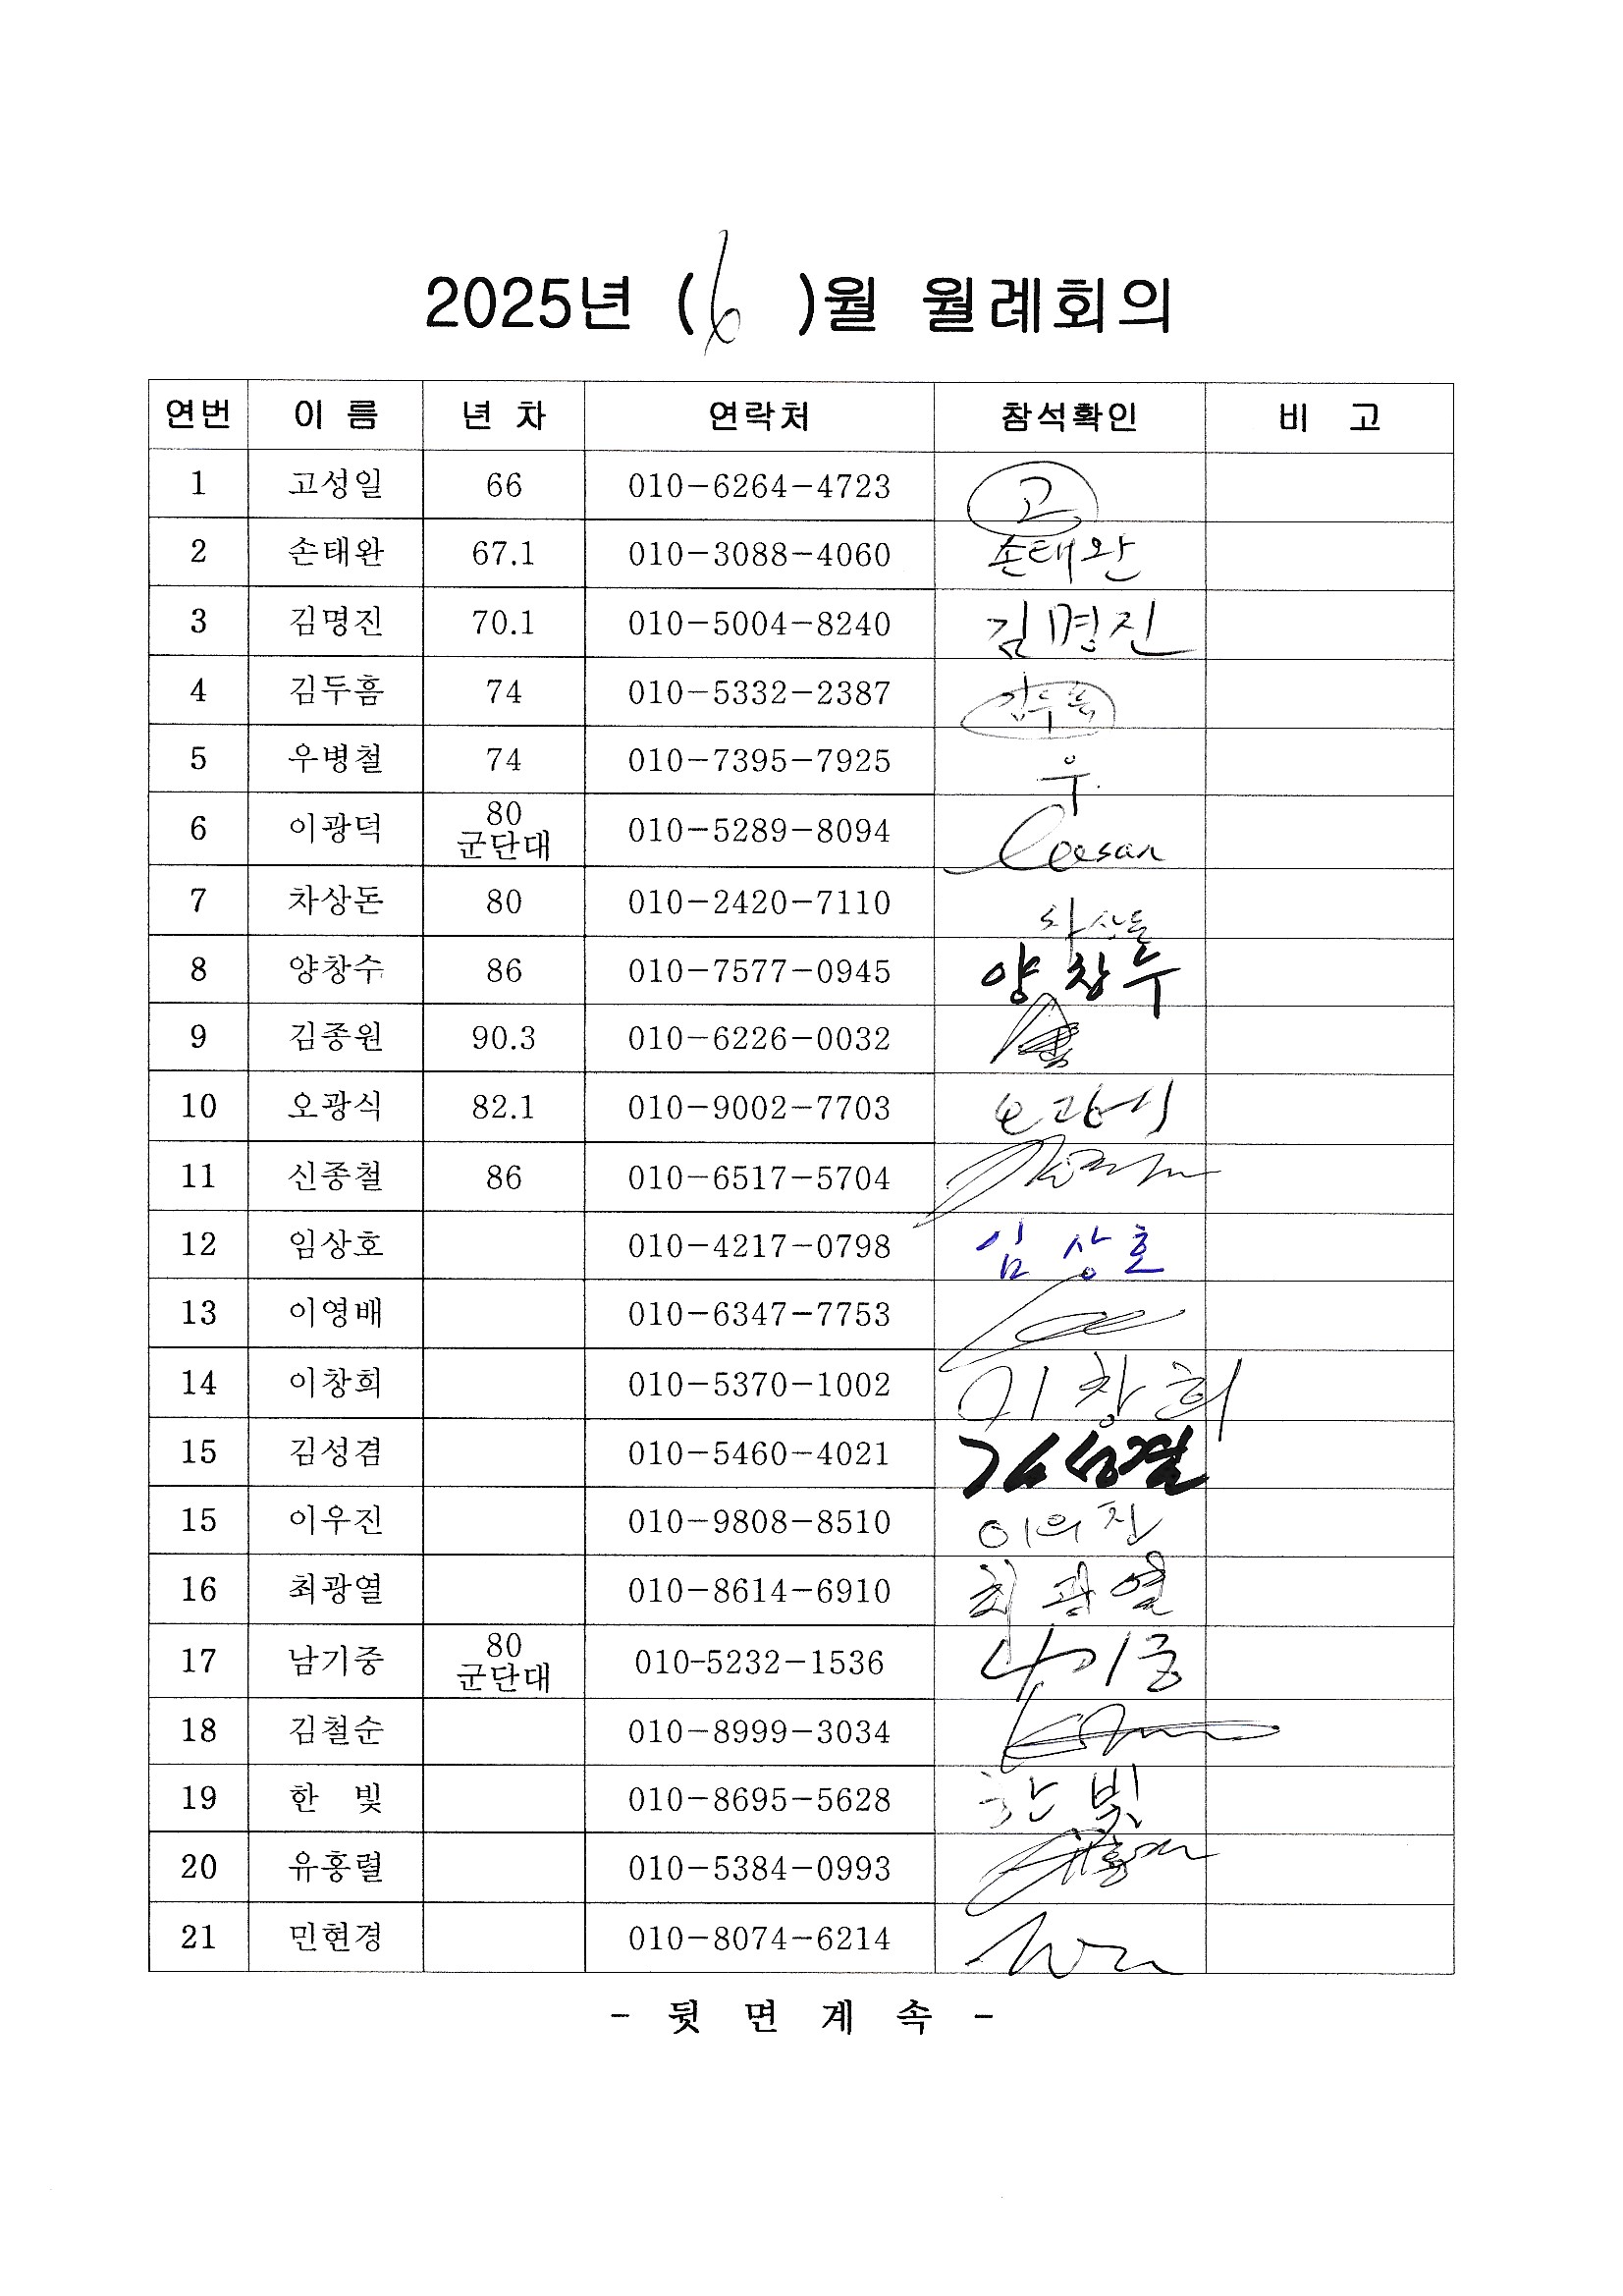 2025년 ( 6 )월 월례회의
연번 이 름 년 차 연락처 참석확인 비 고
1 고성일 66 010-6264-4723 고
2 손태완 67.1 010-3088-4060 손태완
3 김명진 70.1 010-5004-8240 김명진
4 김두흠 74 010-5332-2387 김두흠
5 우병철 74 010-7395-7925 우
6 이광덕 80 군단대 010-5289-8094
7 차상돈 80 010-2420-7110 차상돈
8 양창수 86 010-7577-0945 양창수
9 김종원 90.3 010-6226-0032
10 오광식 82.1 010-9002-7703 오광식
11 신종철 86 010-6517-5704
12 임상호 010-4217-0798 임상호
13 이영배 010-6347-7753
14 이창희 010-5370-1002 이창희
15 김성겸 010-5460-4021 김성겸
15 이우진 010-9808-8510 이우진
16 최광열 010-8614-6910 최광열
17 남기중 80 군단대 010-5232-1536 남기중
18 김철순 010-8999-3034
19 한 빛 010-8695-5628 한 빛
20 유홍렬 010-5384-0993
21 민현경 010-8074-6214
- 뒷 면 계 속 -